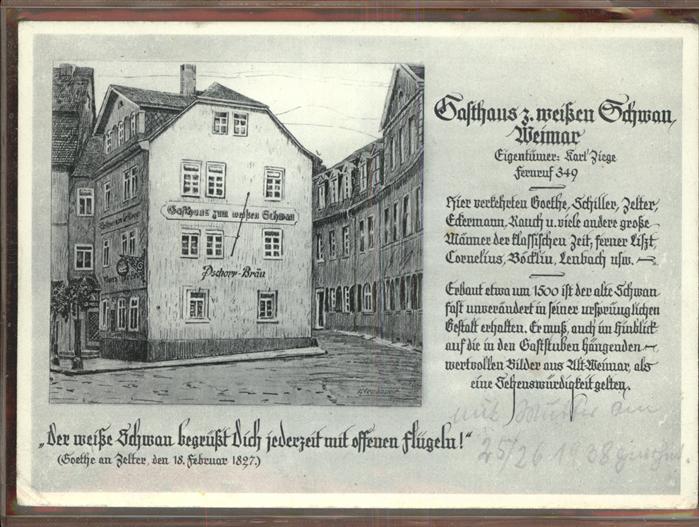 Gasthaus z. weißen Schwan
Weimar
Eigentümer: Karl Ziege
Fernruf 349
Hier verkehrten Goethe, Schiller, Zelter,
Eckermann, Rauch u. viele andere große
Männer der klassischen Zeit, ferner Liszt,
Cornelius, Böcklin, Lenbach usw.
Erbaut etwa um 1500 ist der alte Schwan
fast unverändert in seiner ursprünglichen
Gestalt erhalten. Er muß, auch im Hinblick
auf die in den Gaststuben hängenden
wertvollen Bilder aus Alt Weimar, als
eine Sehenswürdigkeit gelten.
Gasthaus zum weißen Schwan
Pschorr-Bräu
„Der weiße Schwan begrüßt Dich jederzeit mit offenen Flügeln!"
(Goethe an Zelter, den 18. Februar 1827.)
mit Mutter am
25/26 1938